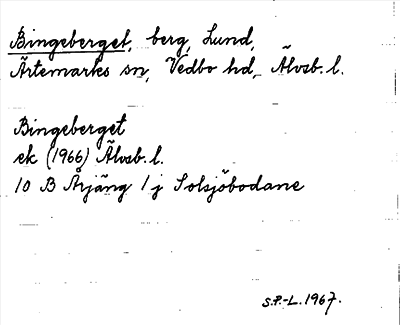 Bingeberget, berg, Lund,
Ärtemarks sn, Vedbo hd, Älvsb. l.
Bingeberget
ek (1966) Älvsb. l.
10 B Årjäng 1 j Solsjöbodane
S.P.-L. 1967.